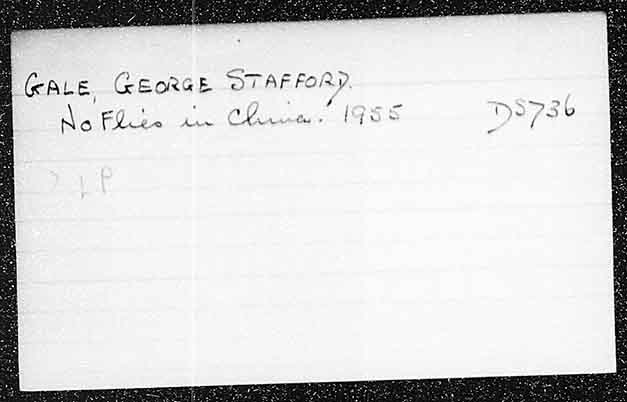 GALE, GEORGE STAFFORD.
No Flies in China. 1955 DS736
LP